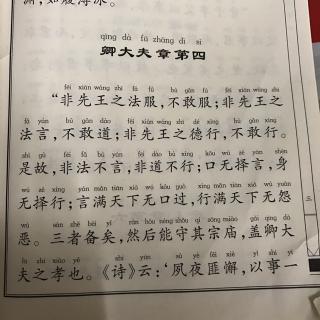 渊，如履薄冰。
qīng dà fū zhāng dì sì
卿大夫章第四
fēi xiān wáng zhī fǎ fú bù gǎn fú fēi xiān wáng zhī
“非先王之法服，不敢服；非先王之
fǎ yán bù gǎn dào fēi xiān wáng zhī dé xìng bù gǎn xíng
法言，不敢道；非先王之德行，不敢行。
shì gù fēi fǎ bù yán fēi dào bù xíng kǒu wú zé yán shēn
是故，非法不言，非道不行；口无择言，身
wú zé xíng yán mǎn tiān xià wú kǒu guò xíng mǎn tiān xià wú yuàn
无择行；言满天下无口过，行满天下无怨
wù sān zhě bèi yǐ rán hòu néng shǒu qí zōng miào gài qīng dà
恶。三者备矣，然后能守其宗庙，盖卿大
fū zhī xiào yě shī yún sù yè fěi xiè yǐ shì yī
夫之孝也。《诗》云：‘夙夜匪懈，以事一
三